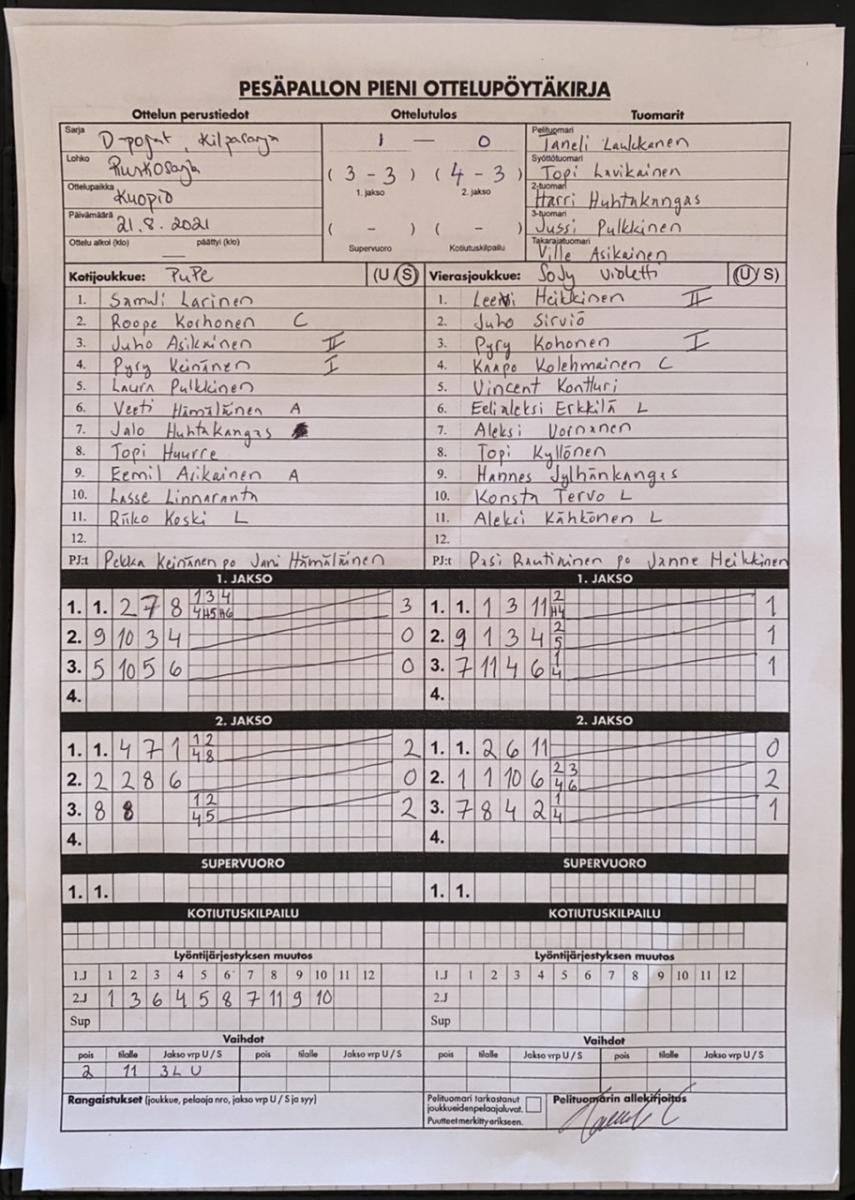 PESÄPALLON PIENI OTTELUPÖYTÄKIRJA
Ottelun perustiedot Ottelutulos Tuomarit
Sarja D-pojat, Kilpasarja
Lohko Ruskosarja
Ottelupaikka Kuopio
Päivämäärä 21.8.2021
Ottelu alkoi (klo) — päättyi (klo)
1 — 0
( 3 - 3 ) ( 4 - 3 )
1. jakso 2. jakso
( - ) ( - )
Supervuoro Kotiutuskilpailu
Pelituomari Taneli Laukkanen
Syöttötuomari Topi Lavikainen
2-tuomari Harri Huhtakangas
3-tuomari Jussi Pulkkinen
Takarajatuomari Ville Asikainen
Kotijoukkue: PuPe (U/S) Vierasjoukkue: SoJy violetti (U/S)
1. Samuli Larinen 1. Leevi Heikkinen II
2. Roope Korhonen C 2. Juho Sirviö
3. Juho Asikainen II 3. Pyry Kohonen I
4. Pyry Keinänen I 4. Kaapo Kolehmainen C
5. Laura Pulkkinen 5. Vincent Kontturi
6. Veeti Hämäläinen A 6. Eelialeksi Erkkilä L
7. Jalo Huhtakangas 7. Aleksi Vornanen
8. Topi Huurre 8. Topi Kyllönen
9. Eemil Asikainen A 9. Hannes Jylhänkangas
10. Lasse Linnaranta 10. Konsta Tervo L
11. Riiko Koski L 11. Aleksi Kähkönen L
12. 12.
PJ:t Pekka Keinänen po Jani Hämäläinen PJ:t Pasi Rautiainen po Janne Heikkinen
1. JAKSO 1. JAKSO
1. 1. 2 7 8 1 3 4 4 H5 H6 3 1. 1. 1 3 11 2 H4 1
2. 9 10 3 4 0 2. 9 1 3 4 2 5 1
3. 5 10 5 6 0 3. 7 11 4 6 1 4 1
4. 4.
2. JAKSO 2. JAKSO
1. 1. 4 7 1 1 2 4 8 2 1. 1. 2 6 11 0
2. 2 2 8 6 0 2. 1 1 10 6 2 3 4 6 2
3. 8 8 1 2 4 5 2 3. 7 8 4 2 1 4 1
4. 4.
SUPERVUORO SUPERVUORO
1. 1. 1. 1.
KOTIUTUSKILPAILU KOTIUTUSKILPAILU
Lyöntijärjestyksen muutos Lyöntijärjestyksen muutos
1.J 1 2 3 4 5 6 7 8 9 10 11 12 1.J 1 2 3 4 5 6 7 8 9 10 11 12
2.J 1 3 6 4 5 8 7 11 9 10 2.J
Sup Sup
Vaihdot Vaihdot
pois tilalle Jakso vrp U / S pois tilalle Jakso vrp U / S pois tilalle Jakso vrp U / S pois tilalle Jakso vrp U / S
2 11 3L U
Rangaistukset (joukkue, pelaaja nro, jakso vrp U / S ja syy)
Pelituomari tarkastanut
joukkueidenpelaajaluvat.
Puutteet merkitty erikseen.
Pelituomarin allekirjoitus